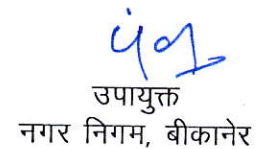 उपायुक्त
नगर निगम, बीकानेर